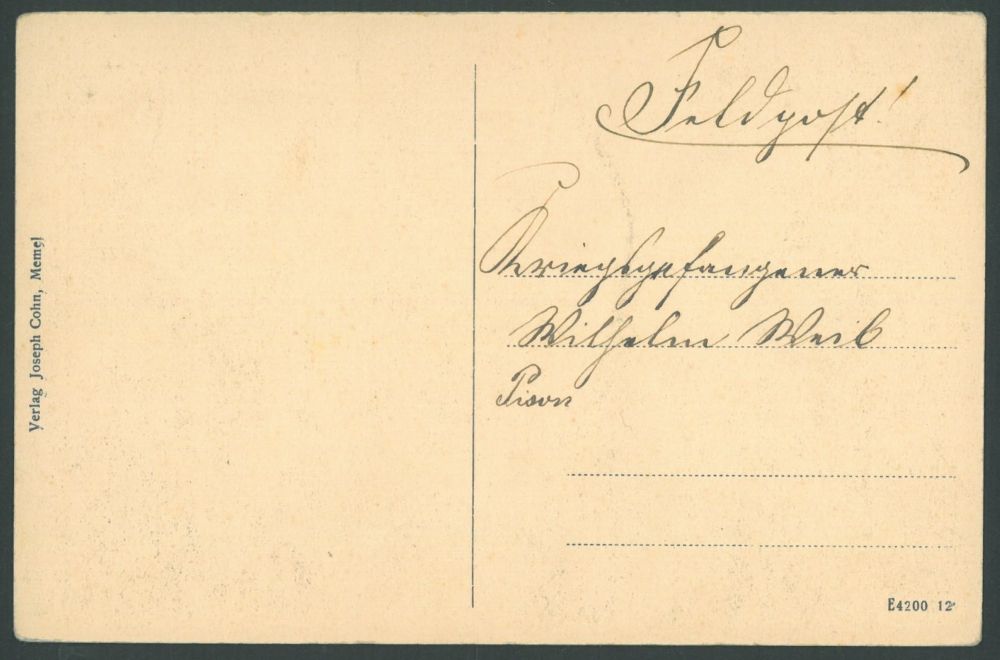 Verlag Joseph Cohn, Memel
Feldpost!
Kriegsgefangener
Wilhelm Weib
E4200 12